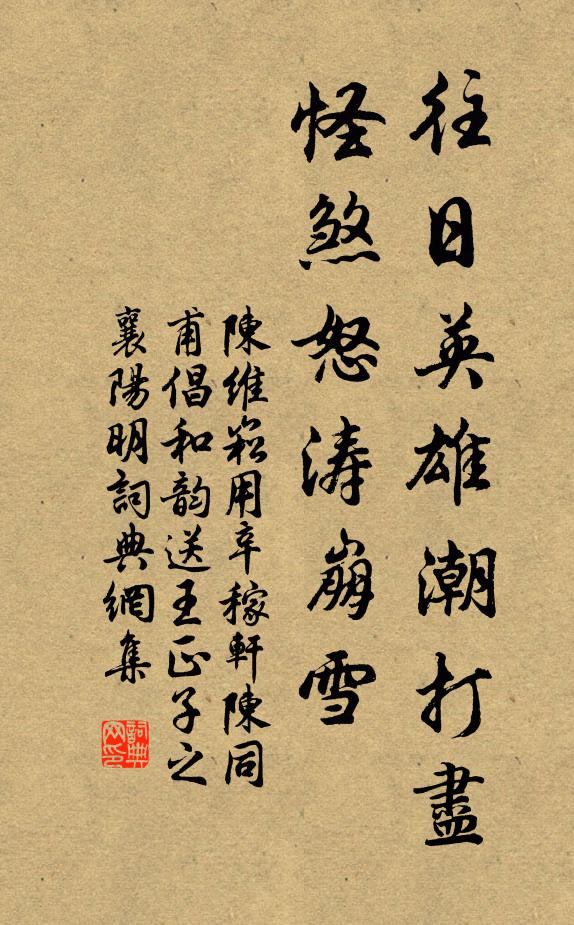 往日英雄潮打盡
怪煞怒濤崩雪
陳維崧用辛稼軒陳同
甫倡和韵送王正子之
襄陽明詞典網集
詞典
网印